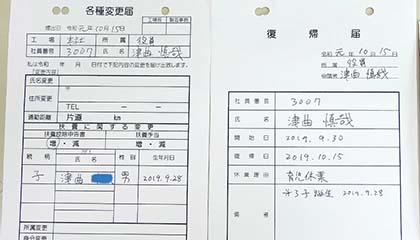 各種変更届
工場長 製造事務
提出日 令和 元年 10月 15日
工場 本社 所属 役員
社員番号 3007 氏名 津曲 慎哉
私は令和 年 月 日付で下記内容の変更を届け出致します。
【変更内容】
氏名変更
〒 －
住所変更
TEL － －
通勤距離 片道 km
扶養に関する変更
扶養控除申告書 扶養手当
増・減 増・減
続柄 氏名 性別 生年月日
子 津曲 男 2019.9.28
所属変更
身分変更
復帰届
令和 元年 10月 15日
所属 役員
申請者 津曲 慎哉
社員番号 3007
氏名 津曲 慎哉
開始日 2019.9.30
復帰日 2019.10.15
休業理由 育児休業
備考 第3子誕生 2019.9.28